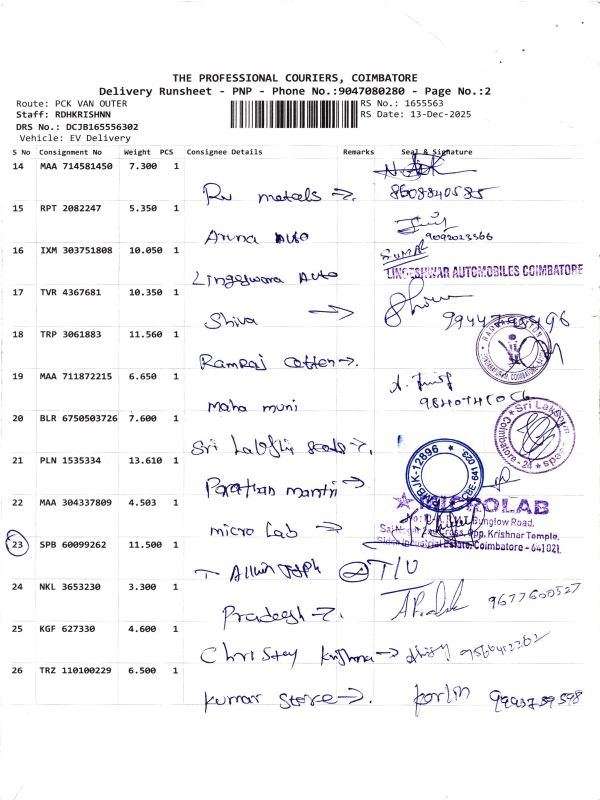 THE PROFESSIONAL COURIERS, COIMBATORE
Delivery Runsheet - PNP - Phone No.:9047080280 - Page No.:2
Route: PCK VAN OUTER
RS No.: 1655563
Staff: RDHKRISHNN
RS Date: 13-Dec-2025
DRS No.: DCJB165556302
Vehicle: EV Delivery
S No Consignment No Weight PCS Consignee Details Remarks Seal & Signature
14 MAA 714581450 7.300 1
Rv metals → 8608840585
15 RPT 2082247 5.350 1
Aruna Auto
16 IXM 303751808 10.050 1
Lingeswara Auto LINGESHWAR AUTOMOBILES COIMBATORE
17 TVR 4367681 10.350 1
Shiva →
18 TRP 3061883 11.560 1
Ramraj cotton →
19 MAA 711872215 6.650 1
maha muni
20 BLR 6750503726 7.600 1
Sri Lakshmi
21 PLN 1535334 13.610 1
→
22 MAA 304337809 4.503 1
micro Lab → MICROLAB
Bunglow Road,
Opp. Krishnar Temple,
Industrial Estate, Coimbatore - 641021.
23 SPB 60099262 11.500 1
T/U
24 NKL 3653230 3.300 1
Pradeesh → 9677600527
25 KGF 627330 4.600 1
Christey Krishna →
26 TRZ 110100229 6.500 1
Kumar Store →